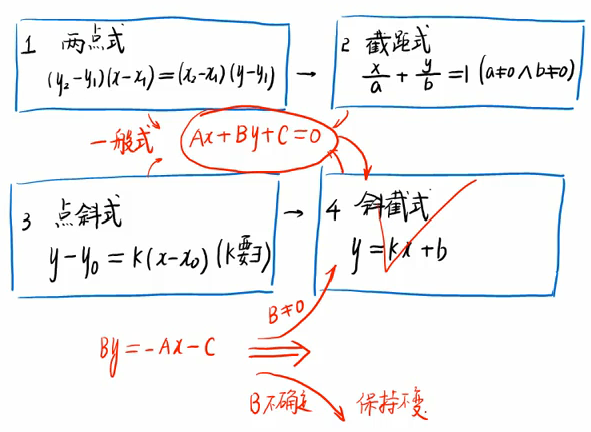 1 两点式
(y₂-y₁)(x-x₁)=(x₂-x₁)(y-y₁)
→
2 截距式
x/a + y/b = 1 (a≠0∧b≠0)
一般式
Ax+By+C=0
3 点斜式
y-y₀=k(x-x₀)(k要∃)
→
4 斜截式
y=kx+b
B≠0
By=-Ax-C
B不确定
保持不变